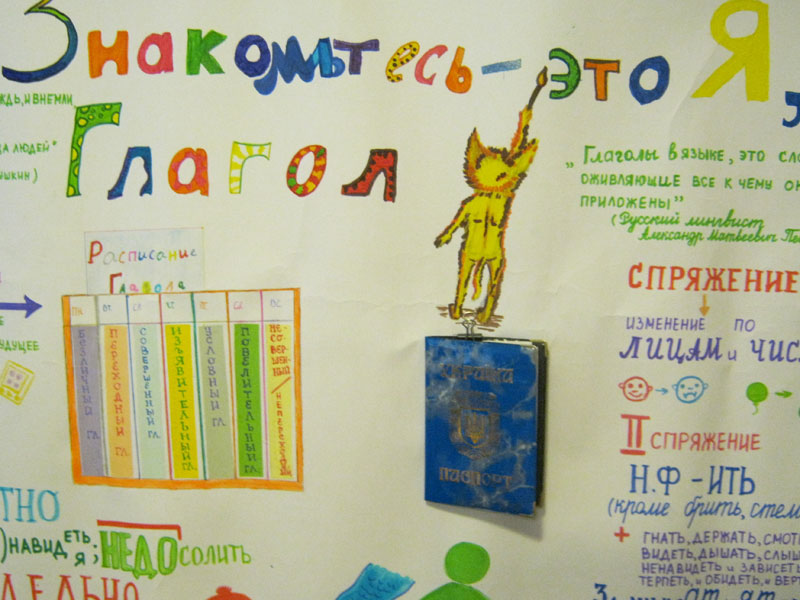 Знакомьтесь – это Я,
Глагол
ждь, и внемли
да людей"
ушкин)
„Глаголы в языке, это сло
оживляющие все к чему он
приложены"
(Русский лингвист
Александр Матвеевич Пе
Расписание
Глагола
ПН ВТ СР ЧТ ПТ СБ ВС
БЕЗЛИЧНЫЙ ГЛ.
ПЕРЕХОДНЫЙ ГЛ.
СОВЕРШЕННЫЙ ГЛ.
ИЗЪЯВИТЕЛЬНЫЙ ГЛ.
УСЛОВНЫЙ ГЛ.
ПОВЕЛИТЕЛЬНЫЙ ГЛ.
НЕСОВЕРШЕННЫЙ / НЕПЕРЕХОДН
УДУЩЕЕ
УКРАЇНИ
ПАСПОРТ
СПРЯЖЕНИЕ
ИЗМЕНЕНИЕ ПО
ЛИЦАМ и ЧИС
II СПРЯЖЕНИЕ
Н.Ф – ИТЬ
(кроме брить, стел
+ ГНАТЬ, ДЕРЖАТЬ, СМОТ
ВИДЕТЬ, ДЫШАТЬ, СЛЫШ
НЕНАВИДЕТЬ и ЗАВИСЕТЬ
ТЕРПЕТЬ, и ОБИДЕТЬ, и ВЕРТ
ТНО
)НАВИДЕТЬ, Я; НЕДОСОЛИТЬ
ДЕЛЬНО